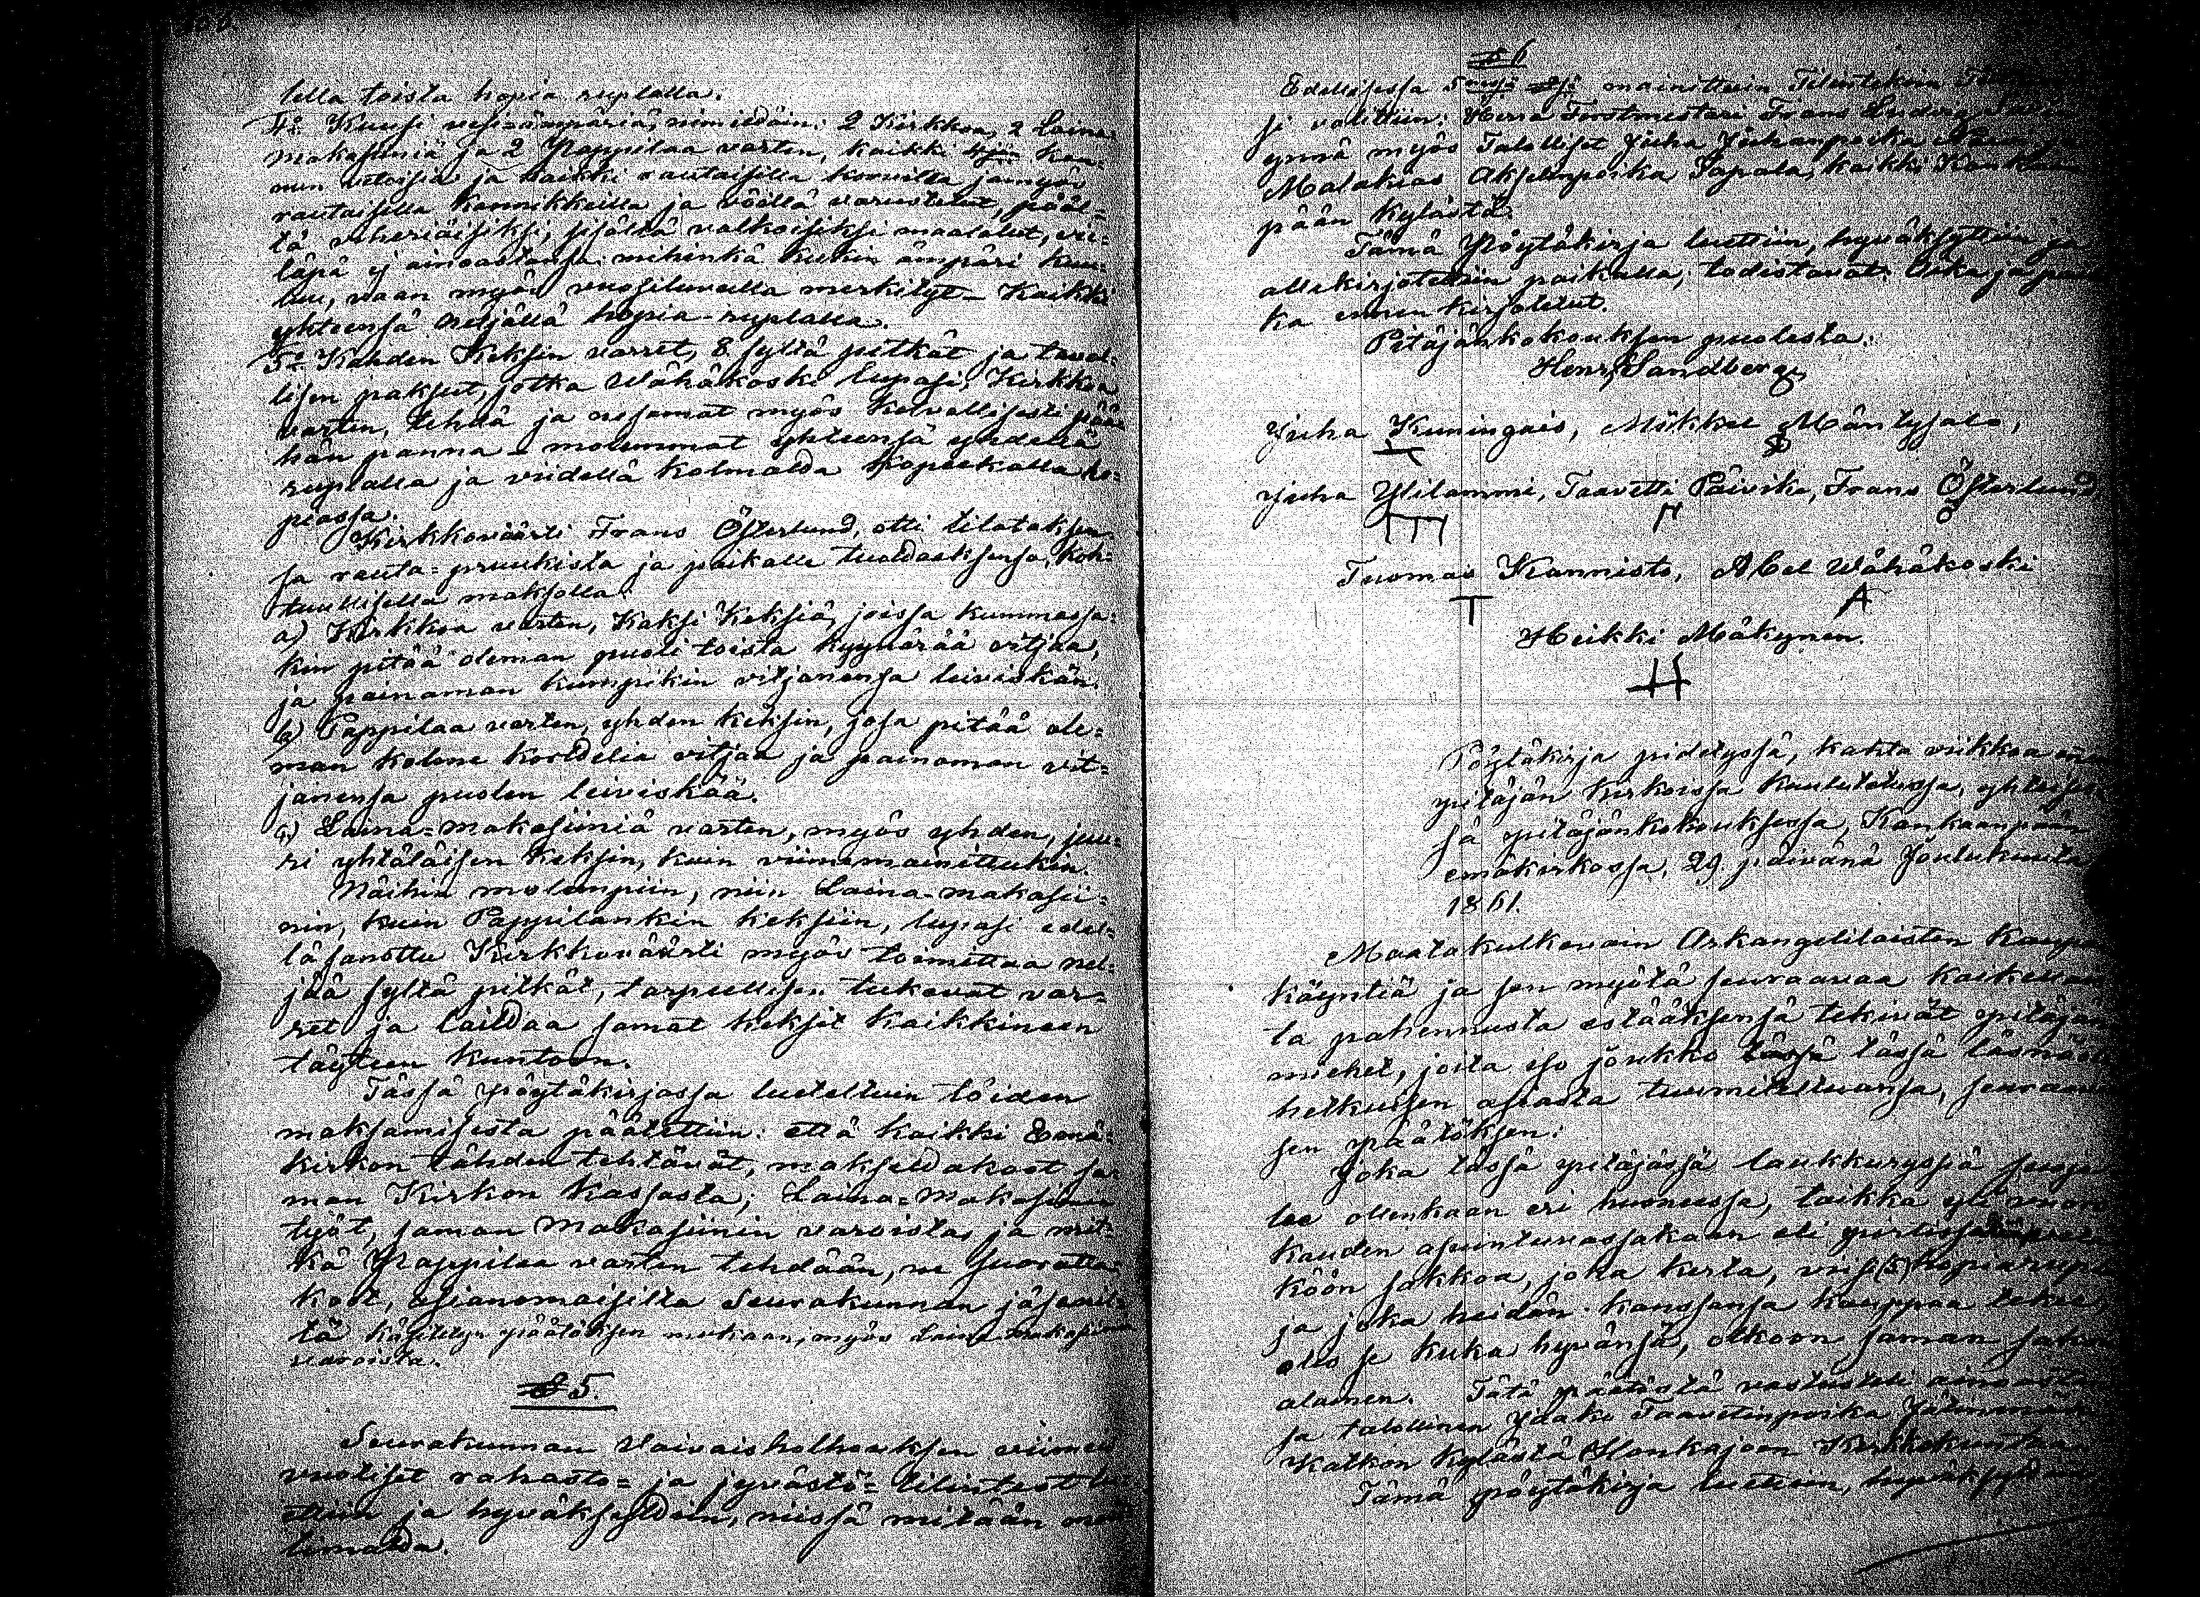 lella toista hopia ruplalla.
4:o Kuusi vesi-ämpäriä, nimittäin: 2 Kirkkoa, 2 Laina
makasiinia ja 2 Pappilaa varten, kaikki kan-
nun vetoisia ja kaikki rautaisilla korvilla ja myös
rautaisilla kannikkeilla ja vöillä varustetut, pääl-
tä viheriäisiksi, sisältä valkoisiksi maalatut, vie-
läpä ej ainoastansa mihinkä kukin ämpäri kuu-
luu, vaan myös vuosiluvulla merkityt - Kaikki
yhteensä neljällä hopia-ruplalla.
5:o Kahden Keksin varret, 8 syltä pitkät ja taval-
lisen paksut, jotka Wähäkoski lupasi, Kirkkoa
varten, tehdä ja nesamat myös kelvollisesti pää-
hän panna - molemmat yhteensä yhdellä
ruplalla ja viidellä kolmatta kopeekalla ho-
piassa.
Kirkkoväärti Frans Österlund, otti tilataksen-
sa rauta-pruukista ja paikalle tuoldaksensa, koh-
tuullisella maksolla:
a) Kirkkoa varten, Kaksi Keksiä, joissa kummassa-
kin pitää oleman puoli toista kyynärää vitjaa,
ja painaman kumpikin vitjanensa leiviskän.
b) Pappilaa varten, yhden keksin, josa pitää ole-
man kolme korldelia vitjaa ja painaman vit-
janensa puolen leiviskää.
c) Laina-makasiinia varten, myös yhden, juu-
ri yhtäläisen keksin, kuin viimemainittukin.
Näihin molempiin, niin Laina-makasii-
nin, kuin Pappilankin keksiin, lupasi edel-
läsanottu Kirkkoväärti myös toimittaa nel-
jää syltä pitkät, tarpeellisen tukevat var-
ret ja laildaa samat keksit kaikkineen
täyteen kuntoon.
Tässä pöytäkirjassa lueteltuin töiden
maksamisesta päätettiin: että kaikki Emä-
kirkon tähden tehtävät, maksetakoot sa-
man Kirkon Kassasta; Laina-makasiinin
työt, saman makasiinin varoista, ja mit-
kä Pappilaa varten tehdään, ne suoritetta-
koot, asianomaisilta Seurakunnan jäseniltä
käsitetyn päätöksen mukaan, myös laina makasiinin
varoista.
§ 5.
Seurakunnan Vaivaisholhouksen viimeis
vuotiset rahasto- ja jyvästö- tilinteot lu-
ettiin ja hyväksyldiin, niissä mitään mui-
timatta.
§ 6
Edellisessä 5 mainittuin Tilintekoin
si valittiin: Herra Forstmestari Frans Ludvig
ynnä myös Talolliset Juha Juhanpoika
Malakias Akselinpoika Sapala, kaikki Kankaan
pään Kylästä.
Tämä Pöytäkirja luettiin, hyväksyttiin ja
allekirjotettiin paikalla, todistavat: Aika ja pai
ka ennen kirjotetut.
Pitäjänkokouksen puolesta:
Henr. Sandberg,
Juha Kuningais, Mikkel Mäntysalo,
Juha Ylilammi, Taavetti Päivike, Frans Österlund
Tuomas Kannisto, Abel Wähäkoski
T A
Heikki Mäkynen.
H
Pöytäkirja pidetyssä, kahta viikkoa en
pitäjän kirkoissa kuulutetussa, yhteise
sä pitäjänkokouksessa, Kankaanpään
emäkirkossa, 29 päivänä Joulukuuta
1861.
Maatakulkevain Arkangelilaisten Kaupa
käyntiä ja sen myötä seuraavaa kaikellai
ta pahennusta estääksensä tekivät pitäjän
miehet, joita iso joukko tässä läsnä
hetkuisen asiasta tuumiteltuansa, seuraavai
sen päätöksen:
Joka tässä pitäjässä laukkuryssiä suoja
lee ollenkaan eri huoneessa, taikka yli vuoro
kauden asuntuvassakaan eli pirtissä
köön sakkoa, joka kerta, viisi (5) hopiarupl
ja joka heidän kanssansa kauppaa tekee,
olis se kuka hyvänsä, olkoon saman sakon
alainen. Tätä päätöstä vastusteli ainoastan
sa talollinen Jaako Taavetinpoika
Katkon Kylästä Honkajoen Kirkkokuntaa.
Tämä pöytäkirja luettiin, hyväksyldiin